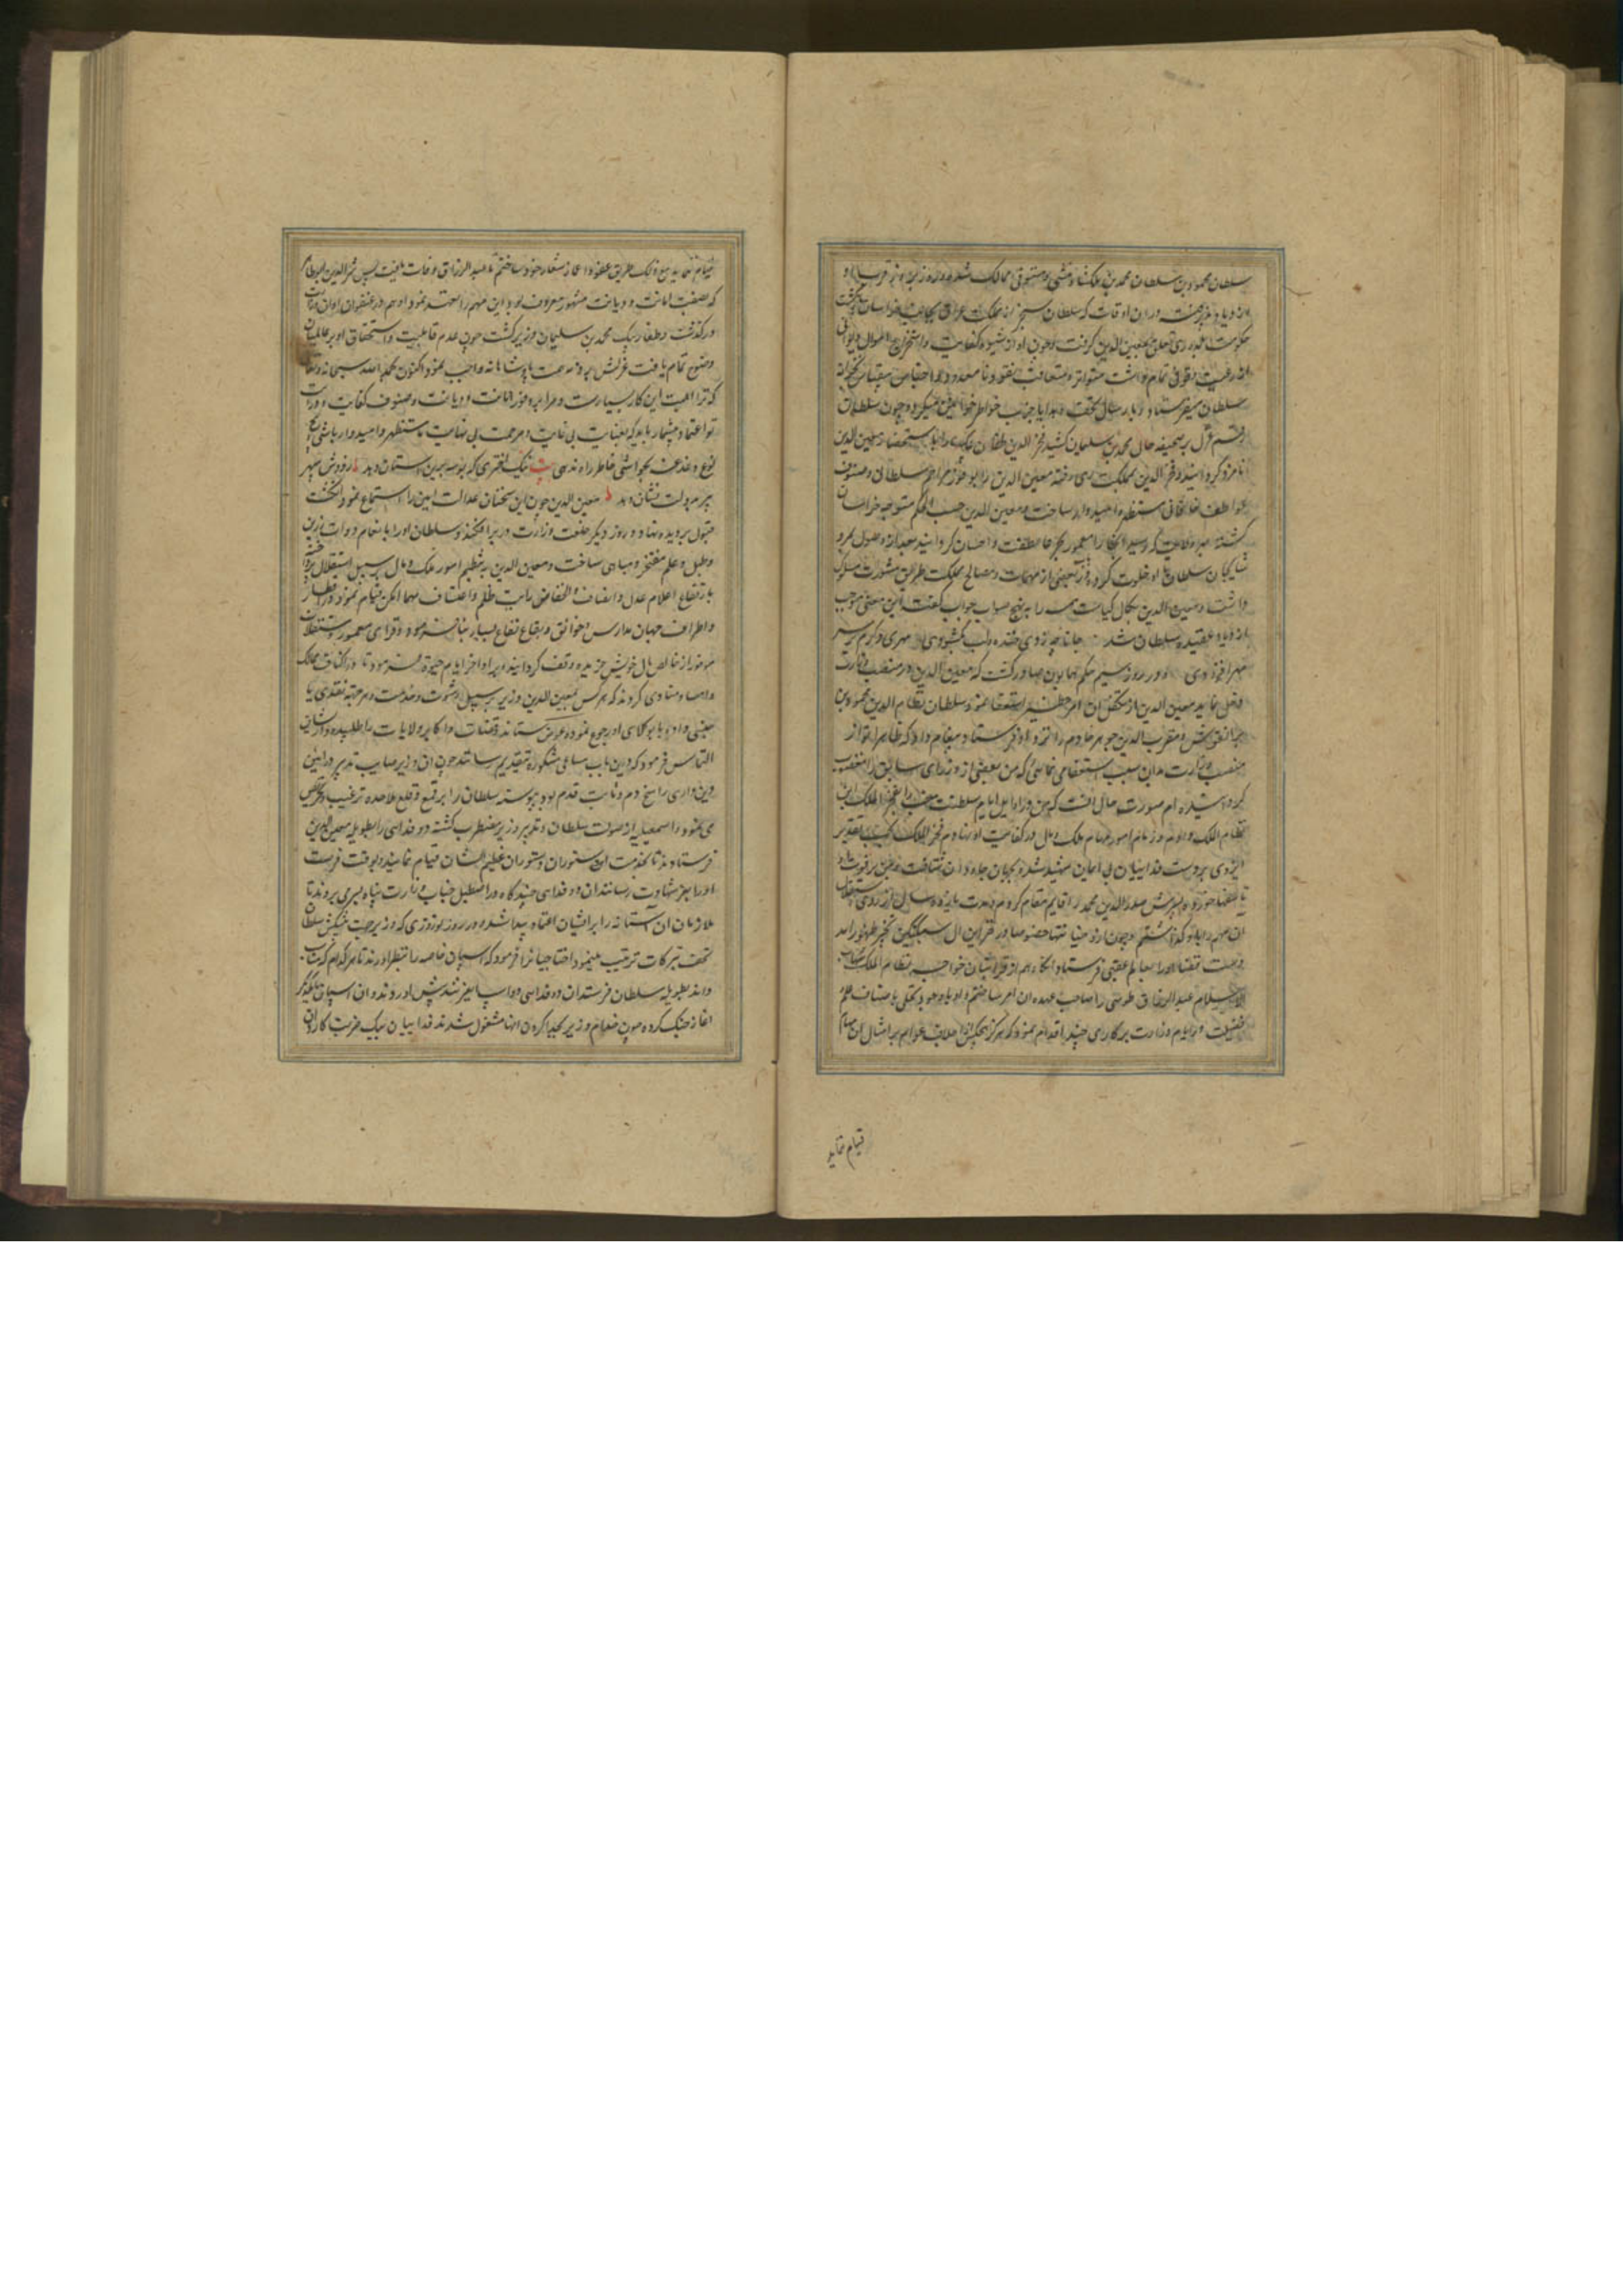 سلطان محمود بن سلطان محمد بن ملکشاه منشی و مستوفی ممالک شده و روز بروز قرب او
در ان اوقات که سلطان سنجر از مملکت عراق بجانب خراسان
حکومت بلده ری تعلق بمعین الدین گرفت و چون او از شیوه کفایت و استخراج اموال دیوانی
وقوفی تمام داشت متواتر و متعاقب نقود نامعدود
سلطان میفرستاد و بارسال تحف و هدایا جذب خواطر خواتین میکرد و چون سلطان
رقم عزل بر صحیفه حال محمد بن سلیمان کشید فخر الدین طغان بیک را باستحضار معین الدین
نامزد کرد امیر فخر الدین بمملکت ری رفته معین الدین را بوفور مراحم سلطان و صنوف
عواطف خاقانی مستظهر و امیدوار ساخت و معین الدین حسب الحکم متوجه خراسان
گشته بهر ولایت که رسید انجا را معمور عاطفت و احسان گردانید و بعد از وصول بمرو
شایگان سلطان با او خلوت کرده در بعضی از مهمات و مصالح مملکت طریق مشورت مسلوک
داشت و معین الدین بکمال کیاست همه را بر نهج صواب جواب گفت این معنی موجب
ازدیاد عقیده سلطان شد
مهر افزودی و در روز سیم حکم همایون صادر گشت که معین الدین در منصب وزارت
دخل نماید معین الدین از تکفل ان امر خطیر استعفا نمود سلطان نظام الدین محمود بن
و مقرب الدین جوهر خادم را نزد او فرستاد و پیغام داد که ظاهرا تو از
منصب وزارت بدان سبب استعفا می نمائی که من بعضی از وزرای سابق را مغضوب
گردانیده ام صورت حال انست که من در اوایل ایام سلطنت منصب را بفخر الملک ابن
نظام الملک دادم و زمام امور مهام ملک و مال در کف کفایت او نهادم فخر الملک بحسب تقدیر
ایزدی بر دست فداییان بی ایمان شهید شد و بجهان جاودان شتافت و من
پسرش صدر الدین محمد را قایم مقام کردم و مدت سال از روی استقلال
ان مهم را باو گذاشتم و چون از و خیانتها خصوصا در قزاین ال سبکتگین بخیز ظهور امد
او را بعالم عقبی فرستاد انگاه هم از قرابتان خواجه نظام الملک شهاب
الاسلام عبد الرزاق طوسی را صاحب عهده ان امر ساختم و او با وجود تحلی باصناف علم
فضیلت در ایام وزارت بر کاری چند اقدام نمود که هرگز هیچکس از اجلاف عوام بر امثال ان
قیام نماید
قیام نماید طریق عفو و اغماض شعار خود ساختم تا عبد الرزاق وفات یافت پس شرف الدین ابو طاهر
که بصفت امانت و دیانت مشهور و معروف بود این مهم را متعهد نمود او هم در عنفوان اوان وزارت
درگذشت و طغار بیک محمد بن سلیمان وزیر گشت چون عدم قابلیت و استحقاق او بر عالمیان
وضوح تمام یافت عزلش بر ذمت همت پادشاهانه واجب نمود و اکنون بحمد الله سبحانه و تعالی
که ترا اهلیت این کار بسیار است و مرا بر وفور امانت و دیانت و صنوف کفایت و درایت
تو اعتماد بیشمار باید که بعنایت بی غایت و مرحمت بی نهایت ما مستظهر و امیدوار باشی و هیچ
نوع دغدغه بحواشی خاطر راه ندهی بیت نیک اختری که بوسه برین استان دهد فردوش سپهر
بر در دولت نشان دهد معین الدین چون این سخنان عدالت ایین را استماع نمود انگشت
قبول بر دیده نهاد و روز دیگر خلعت وزارت در بر افکند و سلطان او را بانعام دوات زرین
و طبل و علم مفتخر و مباهی ساخت و معین الدین بتنظیم امور ملک و مال بر سبیل استقلال پرداخته
بارتفاع اعلام عدل و انصاف و انخفاض رایت ظلم و اعتساف مهما امکن قیام نمود و در اقطار
و اطراف جهان مدارس و خوانق و بقاع نفاع بسیار بنا فرمود و قرای معمور و مستغلات
موفور از خالص مال خویش خریده وقف گردانید و در اواخر ایام حیوة فرمود تا در اکناف ممالک
و امصار منادی کردند که هر کس بمعین الدین وزیر بر سبیل رشوت و خدمت و هر جهته نقدی یا
جنسی داده یا بوکلای او رجوع نموده عوض ستاند و قضات و اکابر ولایات را طلبیده از ایشان
التماس فرمود که درین باب مساعی مشکوره بتقدیم رسانند چون ان وزیر صایب تدبیر در ایین
دین داری راسخ دم و ثابت قدم بود پیوسته سلطان را بر قمع و قلع ملاحده ترغیب و تحریص
می نمود و اسمعیلیه از صولت سلطان و تدبیر وزیر مضطرب گشته دو فدایی را بطویله معین الدین
فرستادند تا بخدمت ستوران دستوران عظیم الشان قیام نمایند و بوقت فرصت
او را بعز شهادت رسانند ان دو فدایی چند گاه در اصطبل جناب وزارت پناه بسر می بردند تا
ملازمان ان آستانه را بر ایشان اعتماد پیدا شده در روز نوروزی که وزیر جهت پیشکش سلطان
تحف و تبرکات ترتیب مینمود اختاجیانرا فرمود که اسپان خاصه را بنظر اورند تا هر کدام که مناسب
داند بطویله سلطان فرستد ان دو فدایی دو اسب پیش اوردند و ان اسپان با یکدیگر
اغاز جنگ کرده چون خدام وزیر بجدا کردن انها مشغول شدند فداییان بیک ضربت کارد ان